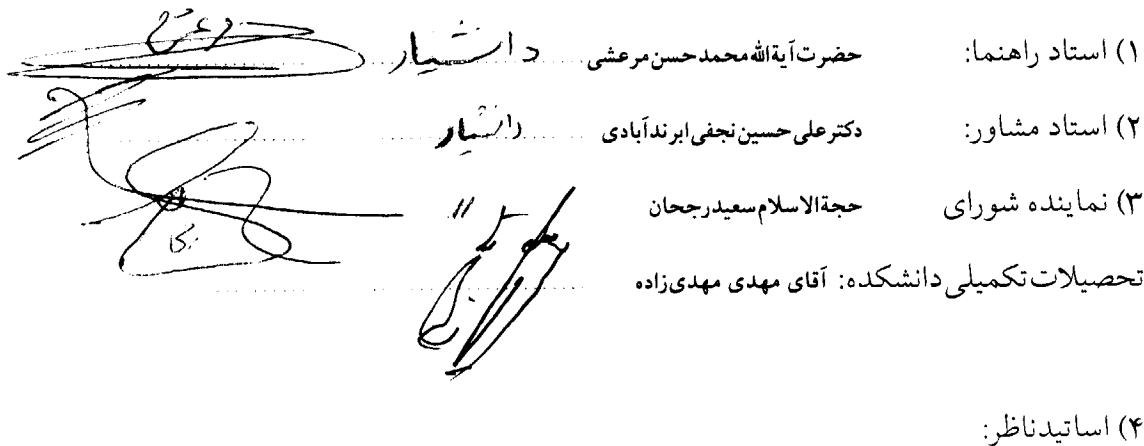 ۱) استاد راهنما: حضرت آیة‌الله محمد حسن مرعشی دانشیار
۲) استاد مشاور: دکتر علی حسین نجفی ابرندآبادی دانشیار
۳) نماینده شورای حجة‌الاسلام سعید رجحان //
تحصیلات تکمیلی دانشکده: آقای مهدی مهدی‌زاده
۴) اساتید ناظر: